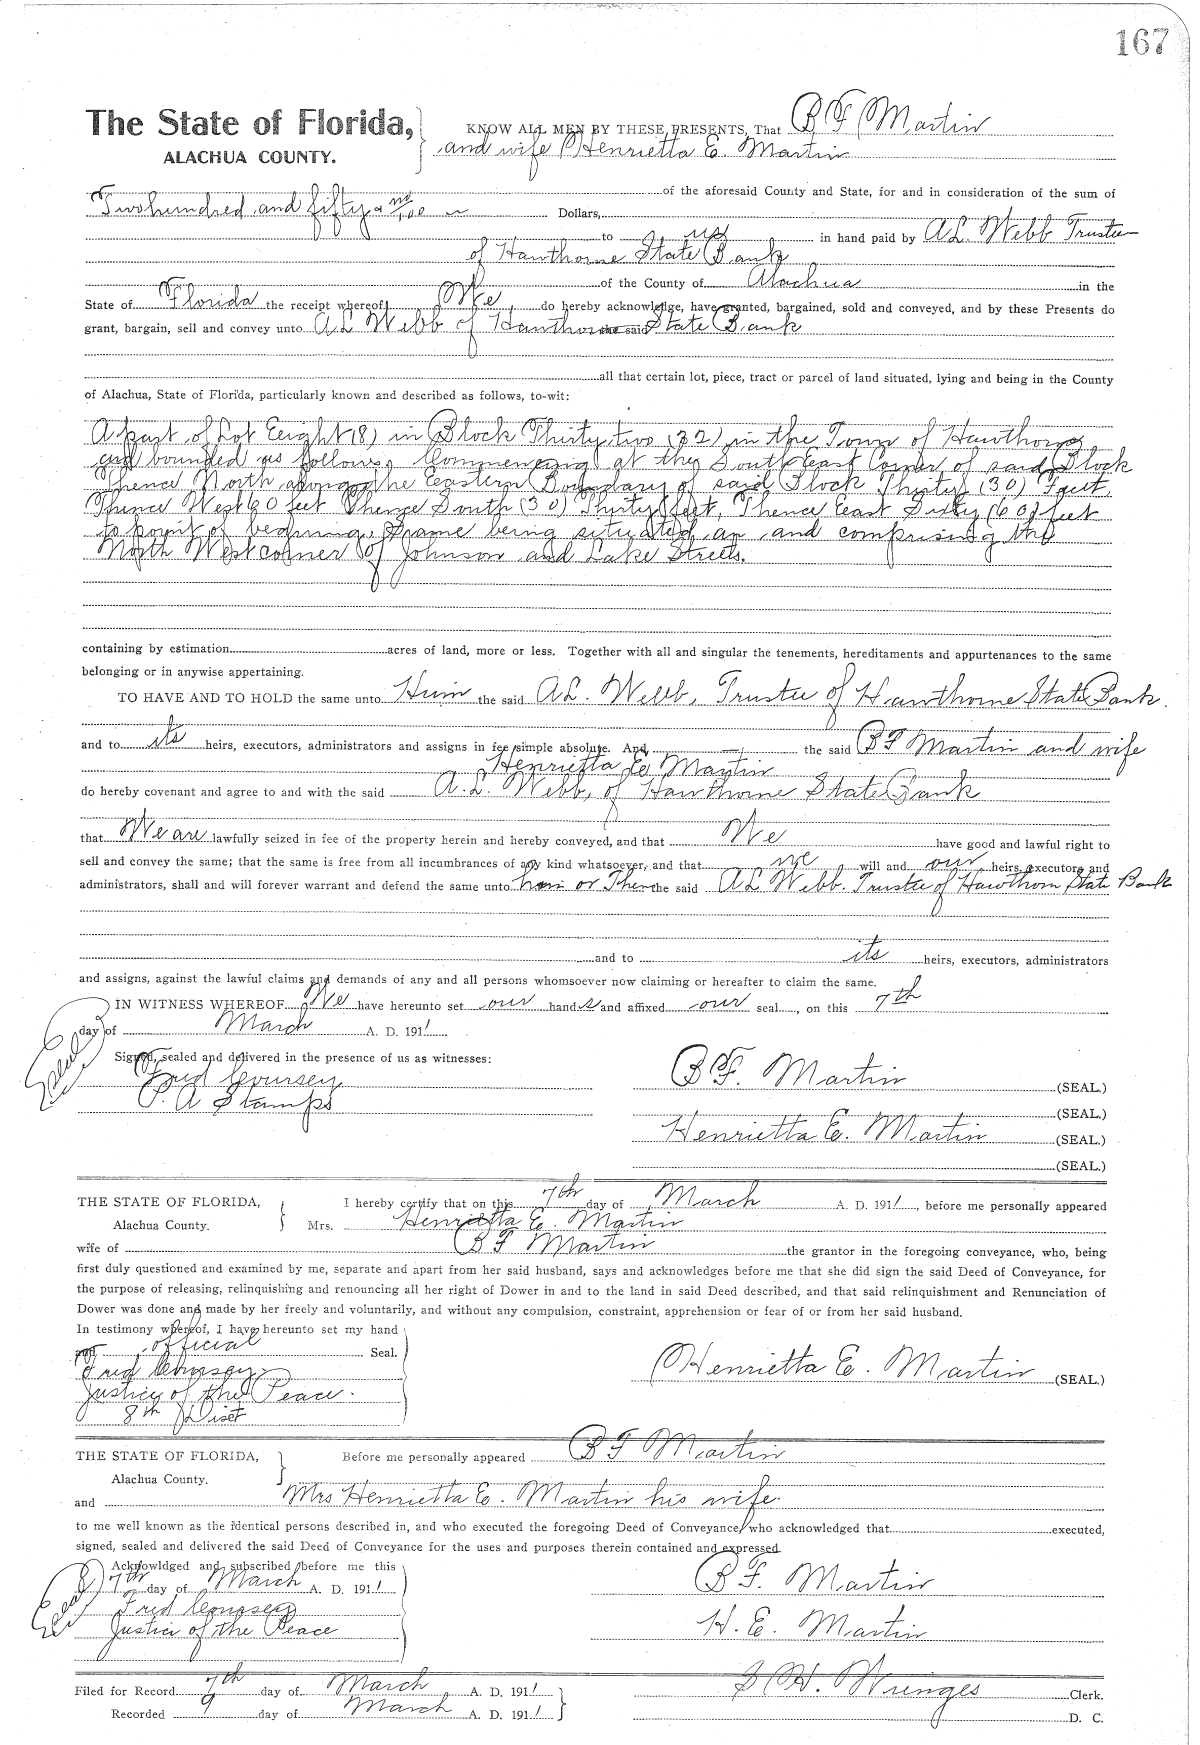 167
The State of Florida,
ALACHUA COUNTY.
KNOW ALL MEN BY THESE PRESENTS, That B F Martin
and wife Henrietta E. Martin
of the aforesaid County and State, for and in consideration of the sum of
Two hundred and fifty & no/100 Dollars,
to us in hand paid by A L. Webb Trustee
of Hawthorne State Bank
of the County of Alachua in the
State of Florida the receipt whereof We do hereby acknowledge, have granted, bargained, sold and conveyed, and by these Presents do
grant, bargain, sell and convey unto A L Webb of Hawthorne the said State Bank
all that certain lot, piece, tract or parcel of land situated, lying and being in the County
of Alachua, State of Florida, particularly known and described as follows, to-wit:
A part of Lot Eeight (8) in Block Thirty two (32) in the Town of Hawthorne
and bounded as follows, Commencing at the South East Corner of said Block
Thence North along the Eastern Boundary of said Block Thirty (30) Feet,
Thence West 60 feet Thence South (30) Thirty feet, Thence East Sixty (60) feet
to point of begining. Same being situated an and comprising the
North West corner of Johnson and Lake Streets.
containing by estimation acres of land, more or less. Together with all and singular the tenements, hereditaments and appurtenances to the same
belonging or in anywise appertaining.
TO HAVE AND TO HOLD the same unto Him the said A L. Webb, Trustee of Hawthorne State Bank.
and to its heirs, executors, administrators and assigns in fee simple absolute. And, the said B F Martin and wife
Henrietta E Martin
do hereby covenant and agree to and with the said A. L. Webb, of Hawthorne State Bank
that We are lawfully seized in fee of the property herein and hereby conveyed, and that We have good and lawful right to
sell and convey the same; that the same is free from all incumbrances of any kind whatsoever, and that we will and our heirs, executors and
administrators, shall and will forever warrant and defend the same unto him or Them the said A L Webb. Trustee of Hawthorn State Bank
and to its heirs, executors, administrators
and assigns, against the lawful claims and demands of any and all persons whomsoever now claiming or hereafter to claim the same.
IN WITNESS WHEREOF We have hereunto set our hands and affixed our seal, on this 7th
day of March A. D. 1911
Seal
Signed, sealed and delivered in the presence of us as witnesses:
Fred Coursey
P. A Stamps
B F. Martin (SEAL.)
(SEAL.)
Henrietta E. Martin (SEAL.)
(SEAL.)
THE STATE OF FLORIDA,
Alachua County.
I hereby certify that on this 7th day of March A. D. 1911, before me personally appeared
Mrs. Henrietta E. Martin
wife of B F Martin the grantor in the foregoing conveyance, who, being
first duly questioned and examined by me, separate and apart from her said husband, says and acknowledges before me that she did sign the said Deed of Conveyance, for
the purpose of releasing, relinquishing and renouncing all her right of Dower in and to the land in said Deed described, and that said relinquishment and Renunciation of
Dower was done and made by her freely and voluntarily, and without any compulsion, constraint, apprehension or fear of or from her said husband.
In testimony whereof, I have hereunto set my hand
and official Seal.
Fred Coursey
Justice of the Peace.
8th Dist
Henrietta E. Martin (SEAL.)
THE STATE OF FLORIDA,
Alachua County.
Before me personally appeared B F Martin
and Mrs Henrietta E. Martin his wife.
to me well known as the identical persons described in, and who executed the foregoing Deed of Conveyance, who acknowledged that executed,
signed, sealed and delivered the said Deed of Conveyance for the uses and purposes therein contained and expressed
Acknowldged and subscribed before me this
7th day of March A. D. 1911
Seal
Fred Coursey
Justice of the Peace
B F. Martin
H. E. Martin
Filed for Record 7th day of March A. D. 1911
Recorded 9 day of March A. D. 1911
S H. Wienges Clerk.
D. C.